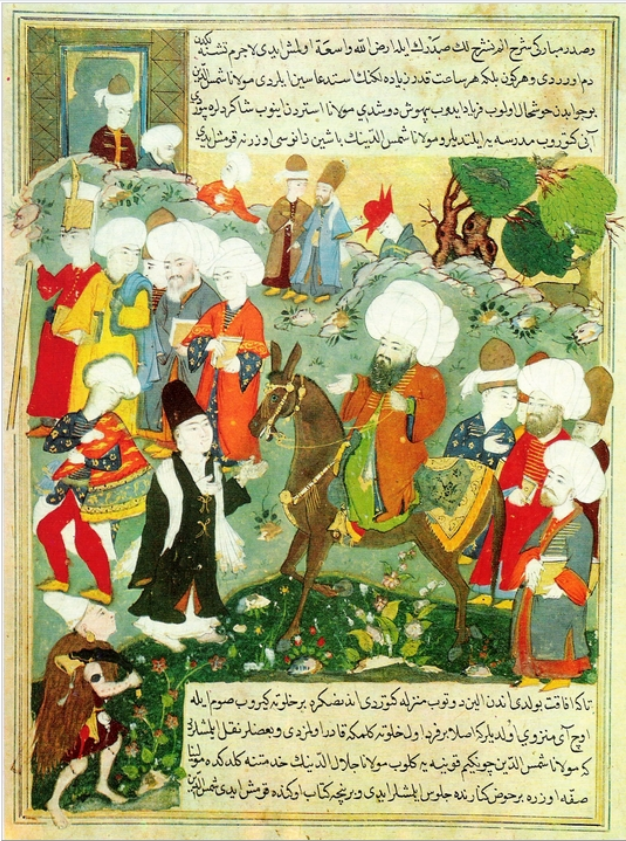 وصدر مباركی شرح الم نشرح لك صدرك ایله ارض الله واسعة اولمش ایدی لاجرم تشنه لكدن
دم اوردی و هركون بلكه هر ساعت قدرن زیاده لكنك استدعاسین ایلردی مولانا شمس الدین
بو جوابدن خوشحال اولوب فریاد ایدوب بیهوش دوشدی مولانا استردن اینوب شاكردلره بیوردی
آنی كوتروب مدرسه یه ایلتدیلر و مولانا شمس الدینك باشین زانوسی اوزرنه قومش ایدی
تا كه افاقت بولدی اندن الین دوتوب منزله كوتوردی اندنصكره بر خلوته كیروب صوم ایله
اوچ آی منزوی اولدیلر كه اصلا بر فرد اول خلوته كلمكه قادر اولمزدی و بعضلر نقل ایلشلر
كه مولانا شمس الدین چونكیم قونیه یه كلوب مولانا جلال الدینك خدمتنه كلدكده مولینا
صفه اوزره بر حوض كنارنده جلوس ایلشلر ایدی و برنچه كتاب اوكنده قومش ایدی شمس الدین